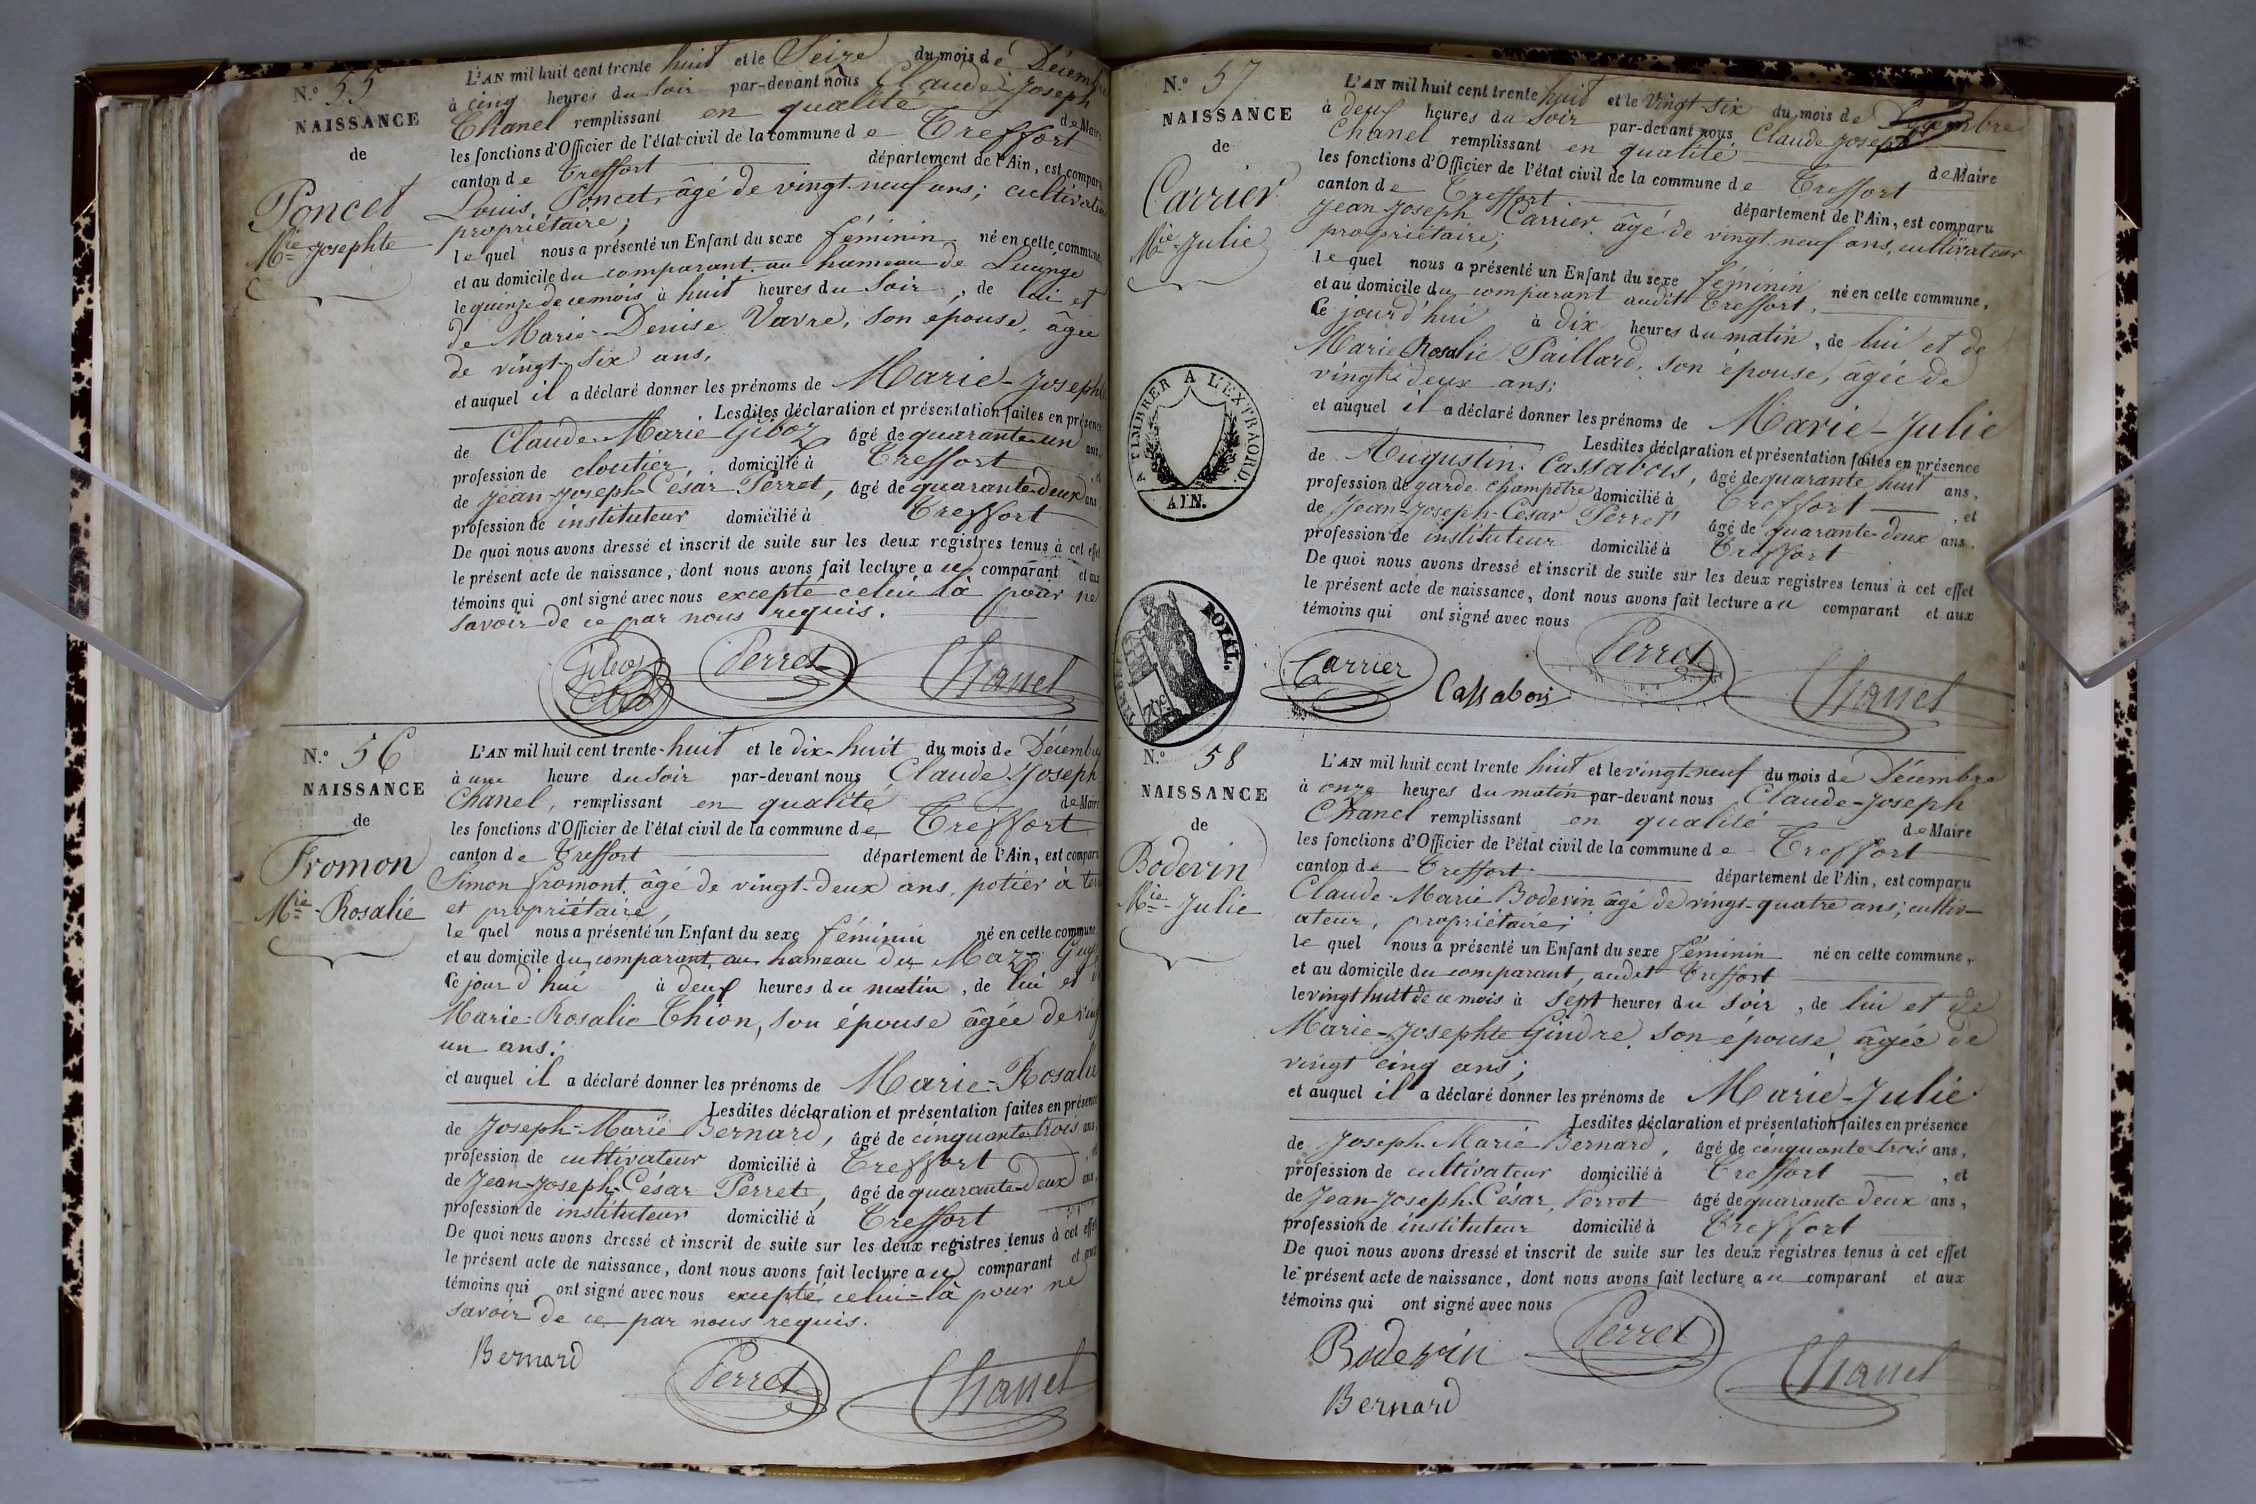 N.o 55
NAISSANCE
de
Poncet
Mie Josephte
L'AN mil huit cent trente huit et le Seize du mois de Décembre
à cinq heures du Soir par-devant nous Claude Joseph
Chanel remplissant en qualité de Maire
les fonctions d'Officier de l'état civil de la commune de Treffort
canton de Treffort département de l'Ain, est comparu
Louis Poncet, âgé de vingt-neuf ans; cultivateur
propriétaire;
le quel nous a présenté un Enfant du sexe féminin né en cette commune,
et au domicile du comparant au hameau de Lucinge
le quinze de ce mois à huit heures du Soir, de lui et
de Marie-Denise Vavre, son épouse, âgée
de vingt-six ans,
et auquel il a déclaré donner les prénoms de Marie-Josephte
Lesdites déclaration et présentation faites en présence
de Claude-Marie Giboz âgé de quarante-un ans,
profession de cloutier, domicilié à Treffort, et
de Jean-Joseph-César Perret, âgé de quarante-deux ans
profession de instituteur domicilié à Treffort
De quoi nous avons dressé et inscrit de suite sur les deux registres tenus à cet effet
le présent acte de naissance, dont nous avons fait lecture au comparant et aux
témoins qui ont signé avec nous excepté celui là pour ne
savoir de ce par nous requis.
Giboz Perret Chanel
N.o 56
NAISSANCE
de
Fromon
Mie-Rosalie
L'AN mil huit cent trente-huit et le dix-huit du mois de Décembre
à une heure du Soir par-devant nous Claude Joseph
Chanel, remplissant en qualité de Maire
les fonctions d'Officier de l'état civil de la commune de Treffort
canton de Treffort département de l'Ain, est comparu
Simon fromont, âgé de vingt-deux ans, potier à terre
et propriétaire,
le quel nous a présenté un Enfant du sexe féminin né en cette commune
et au domicile du comparant, au hameau du Maz-Guy
Ce jour d'hui à deux heures du matin, de lui et
Marie-Rosalie Thion, son épouse âgée de vingt
un ans;
et auquel il a déclaré donner les prénoms de Marie-Rosalie
Lesdites déclaration et présentation faites en présence
de Joseph-Marie Bernard, âgé de cinquante trois ans,
profession de cultivateur domicilié à Treffort, et
de Jean-Joseph-César Perret, âgé de quarante-deux ans,
profession de instituteur domicilié à Treffort
De quoi nous avons dressé et inscrit de suite sur les deux registres tenus à cet effet
le présent acte de naissance, dont nous avons fait lecture au comparant et aux
témoins qui ont signé avec nous excepté celui-là pour ne
savoir de ce par nous requis.
Bernard Perret Chanel
N.o 57
NAISSANCE
de
Carrier
Mie-Julie
A TIMBRER A L'EXTRAORD.
AIN.
TIMBRE ROYAL.
70c
L'AN mil huit cent trente huit et le vingt-six du mois de Décembre
à deux heures du Soir par-devant nous Claude Joseph
Chanel remplissant en qualité de Maire
les fonctions d'Officier de l'état civil de la commune de Treffort
canton de Treffort département de l'Ain, est comparu
Jean-Joseph Carrier, âgé de vingt neuf ans, cultivateur
propriétaire;
le quel nous a présenté un Enfant du sexe féminin né en cette commune,
et au domicile du comparant audit Treffort,
Ce jourd'hui à dix heures du matin, de lui et de
Marie Rosalie Paillard, son épouse, âgée de
vingt-deux ans;
et auquel il a déclaré donner les prénoms de Marie-Julie
Lesdites déclaration et présentation faites en présence
de Augustin Cassabois, âgé de quarante huit ans,
profession de garde champêtre domicilié à Treffort, et
de Jean-Joseph-César Perret âgé de quarante-deux ans.
profession de instituteur domicilié à Treffort
De quoi nous avons dressé et inscrit de suite sur les deux registres tenus à cet effet
le présent acte de naissance, dont nous avons fait lecture au comparant et aux
témoins qui ont signé avec nous
Carrier Cassabois Perret Chanel
N.o 58
NAISSANCE
de
Boderin
Mie-Julie
L'AN mil huit cent trente huit et le vingt-neuf du mois de Décembre
à onze heures du matin par-devant nous Claude-Joseph
Chanel remplissant en qualité de Maire
les fonctions d'Officier de l'état civil de la commune de Treffort
canton de Treffort département de l'Ain, est comparu
Claude-Marie Boderin âgé de vingt-quatre ans; cultiv-
ateur, propriétaire;
le quel nous a présenté un Enfant du sexe féminin né en cette commune,
et au domicile du comparant, audit Treffort
le vingt huit de ce mois à sept heures du soir, de lui et de
Marie-Josephte Gindre son épouse âgée de
vingt cinq ans;
et auquel il a déclaré donner les prénoms de Marie-Julie
Lesdites déclaration et présentation faites en présence
de Joseph Marie Bernard, âgé de cinquante trois ans,
profession de cultivateur domicilié à Treffort, et
de Jean-Joseph-César Perret âgé de quarante deux ans,
profession de instituteur domicilié à Treffort
De quoi nous avons dressé et inscrit de suite sur les deux registres tenus à cet effet
le présent acte de naissance, dont nous avons fait lecture au comparant et aux
témoins qui ont signé avec nous
Boderin Perret Chanel
Bernard